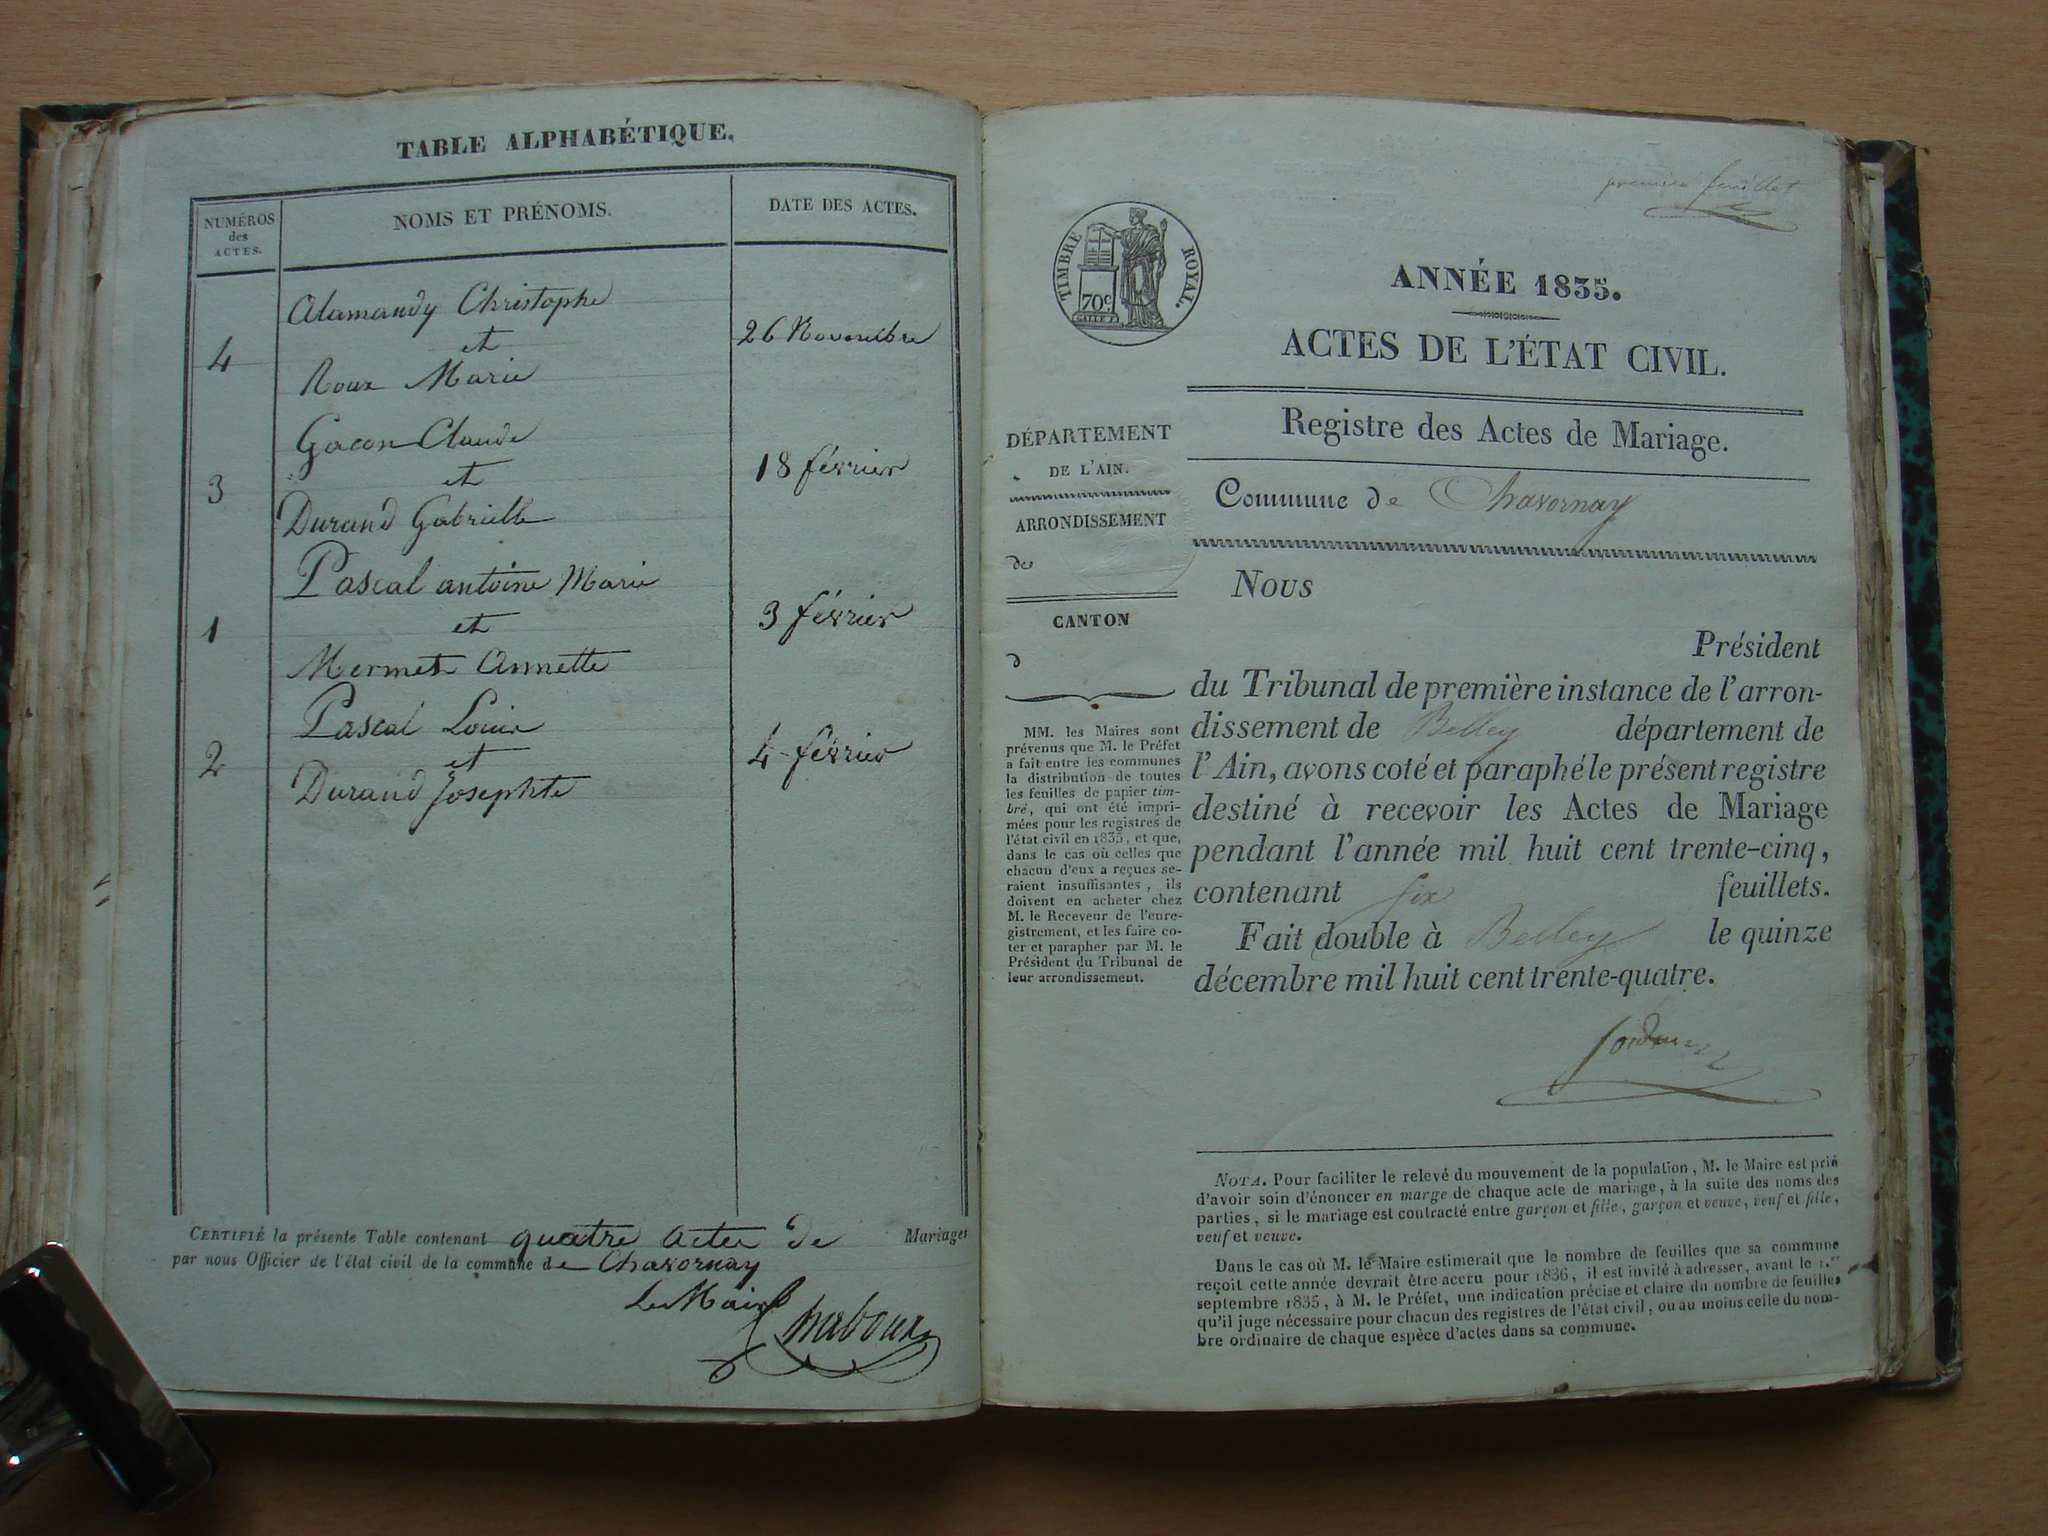 TABLE ALPHABÉTIQUE.
NUMÉROS
des
ACTES.
NOMS ET PRÉNOMS.
DATE DES ACTES.
Alamandy Christophe
4
et
26 Novembre
Roux Marie
Gacon Claude
3
et
18 février
Durand Gabrielle
Pascal antoine Marie
1
et
3 février
Mermet Annette
Pascal Louis
2
et
4 février
Durand Josephte
CERTIFIÉ la présente Table contenant quatre actes de Mariages
par nous Officier de l'état civil de la commune de Chavornay
Le Maire
premier feuillet
TIMBRE ROYAL.
70c.
ANNÉE 1835.
ACTES DE L'ÉTAT CIVIL.
Registre des Actes de Mariage.
Commune de Chavornay
DÉPARTEMENT
DE L'AIN.
ARRONDISSEMENT
de
CANTON
d
MM. les Maires sont
prévenus que M. le Préfet
a fait entre les communes
la distribution de toutes
les feuilles de papier tim-
bré, qui ont été impri-
mées pour les registres de
l'état civil en 1835, et que,
dans le cas où celles que
chacun d'eux a reçues se-
raient insuffisantes, ils
doivent en acheter chez
M. le Receveur de l'enre-
gistrement, et les faire co-
ter et parapher par M. le
Président du Tribunal de
leur arrondissement.
Nous
Président
du Tribunal de première instance de l'arron-
dissement de Belley département de
l'Ain, avons coté et paraphé le présent registre
destiné à recevoir les Actes de Mariage
pendant l'année mil huit cent trente-cinq,
contenant six feuillets.
Fait double à Belley le quinze
décembre mil huit cent trente-quatre.
NOTA. Pour faciliter le relevé du mouvement de la population, M. le Maire est prié
d'avoir soin d'énoncer en marge de chaque acte de mariage, à la suite des noms des
parties, si le mariage est contracté entre garçon et fille, garçon et veuve, veuf et fille,
veuf et veuve.
Dans le cas où M. le Maire estimerait que le nombre de feuilles que sa commune
reçoit cette année devrait être accru pour 1836, il est invité à adresser, avant le 1.er
septembre 1835, à M. le Préfet, une indication précise et claire du nombre de feuilles
qu'il juge nécessaire pour chacun des registres de l'état civil, ou au moins celle du nom-
bre ordinaire de chaque espèce d'actes dans sa commune.